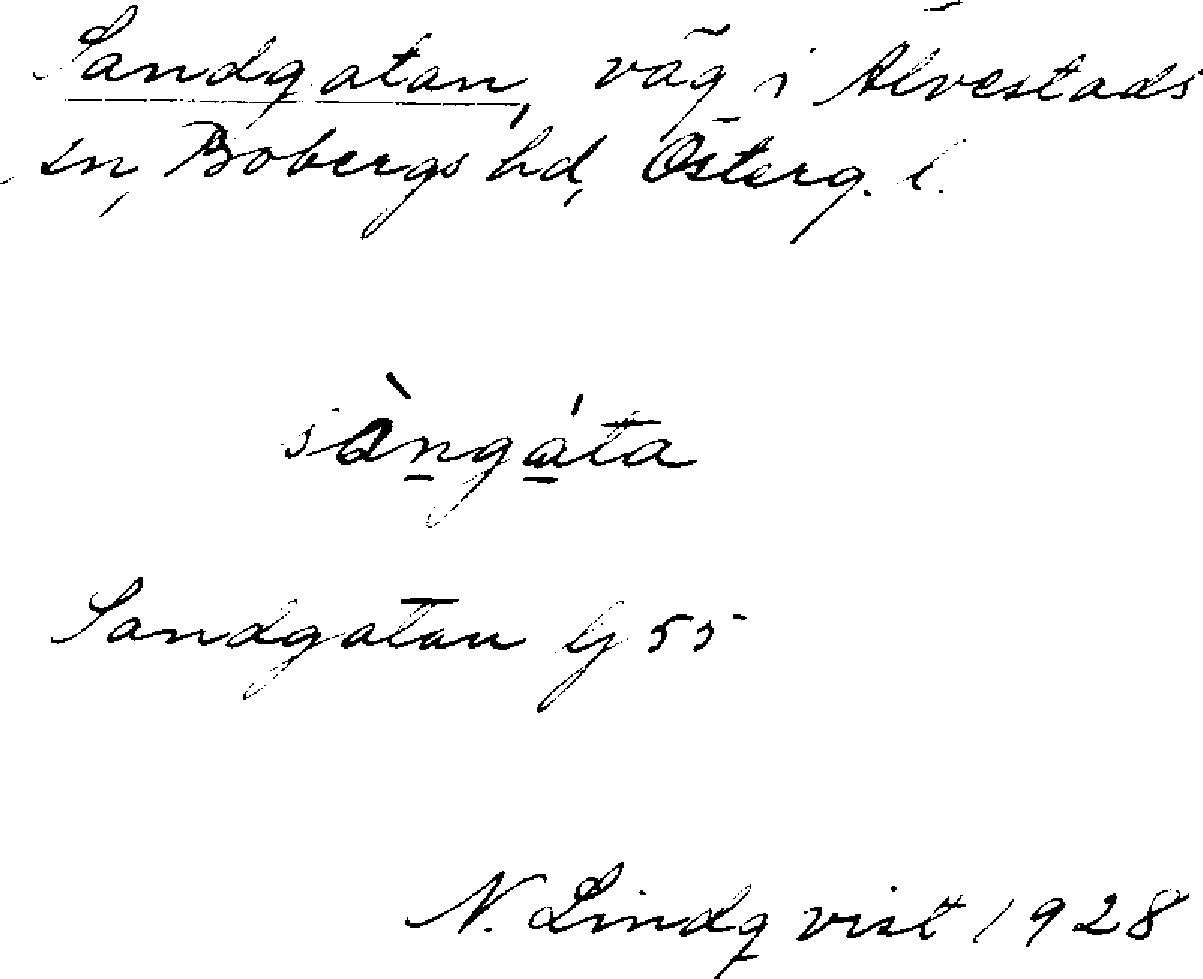 Sandgatan, väg i Alvestads
sn, Bobergs hd, Österg. l.
sàngáta
Sandgatan Lj 55
N. Lindqvist 1928